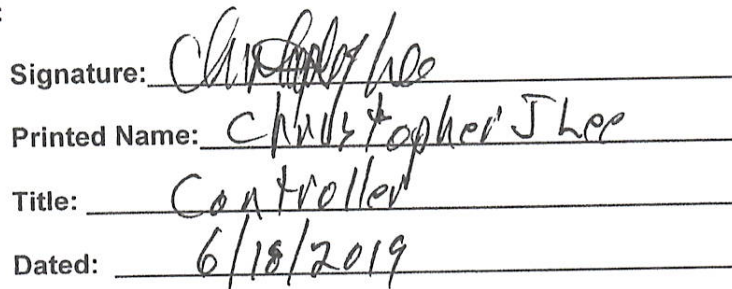 :
Signature: Christopher Lee
Printed Name: Christopher J Lee
Title: Controller
Dated: 6/18/2019